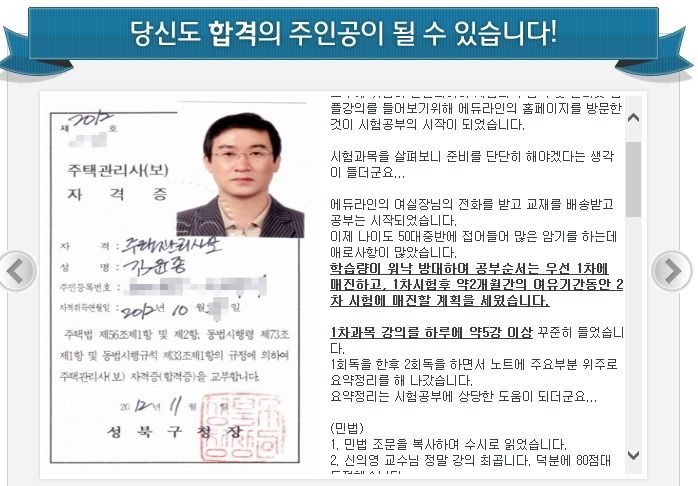 당신도 합격의 주인공이 될 수 있습니다!
제 2012 호
주택관리사(보)
자 격 증
자 격 : 주택관리사보
성 명 : 김윤종
주민등록번호 :
자격취득연월일 : 2012년 10월 일
주택법 제56조제1항 및 제2항, 동법시행령 제73조
제1항 및 동법시행규칙 제33조제1항의 규정에 의하여
주택관리사(보) 자격증(합격증)을 교부합니다.
2012년 11월 일
성 북 구 청 장
플강의를 들어보기위해 에듀라인의 홈페이지를 방문한
것이 시험공부의 시작이 되었습니다.
시험과목을 살펴보니 준비를 단단히 해야겠다는 생각
이 들더군요...
에듀라인의 여실장님의 전화를 받고 교재를 배송받고
공부는 시작되었습니다.
이제 나이도 50대중반에 접어들어 많은 암기를 하는데
애로사항이 많았습니다.
학습량이 워낙 방대하여 공부순서는 우선 1차에
매진하고, 1차시험후 약2개월간의 여유기간동안 2
차 시험에 매진할 계획을 세웠습니다.
1차과목 강의를 하루에 약5강 이상 꾸준히 들었습니
다.
1회독을 한후 2회독을 하면서 노트에 주요부분 위주로
요약정리를 해 나갔습니다.
요약정리는 시험공부에 상당한 도움이 되더군요...
(민법)
1. 민법 조문을 복사하여 수시로 읽었습니다.
2. 신의영 교수님 정말 강의 최곱니다. 덕분에 80점대